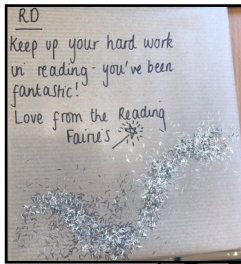 RD
Keep up your hard work
in reading - you've been
fantastic!
Love from the Reading
Fairie's